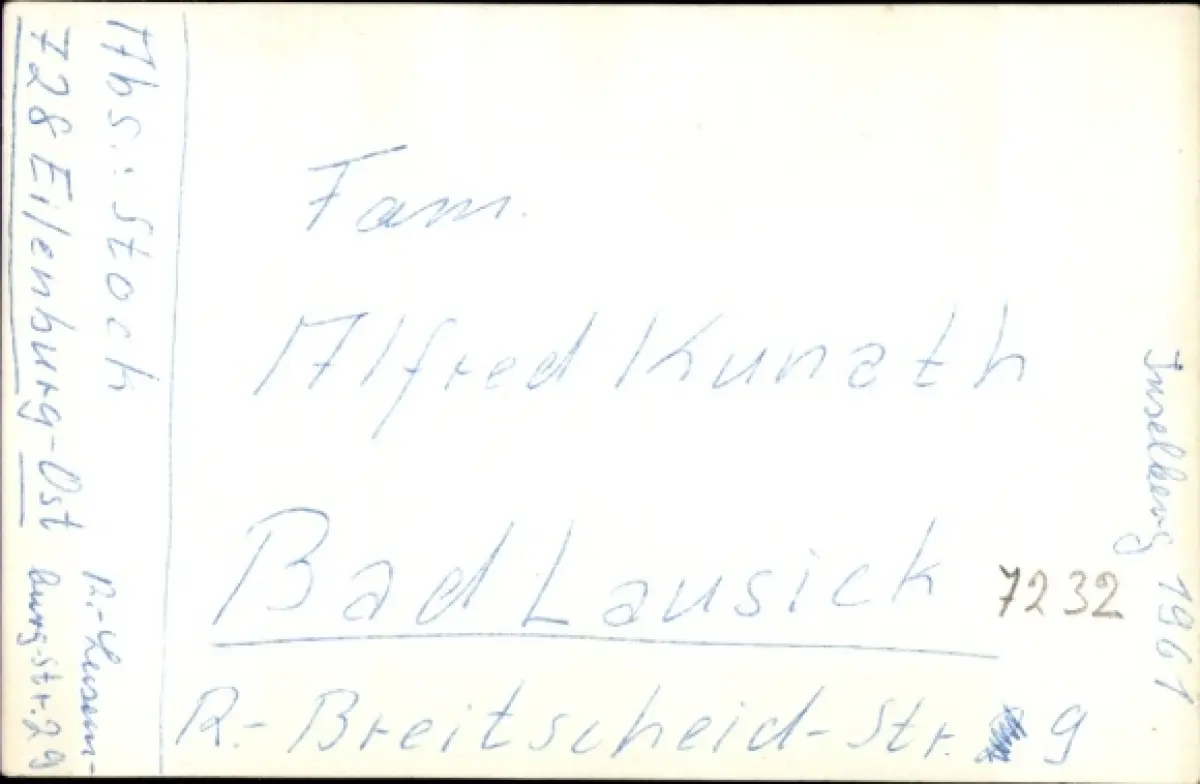 Abs.: Stock
728 Eilenburg-Ost
R.-Luxem-
burg-Str. 29
Fam.
Alfred Kunath
Bad Lausick 7232
R.-Breitscheid-Str. 9
Inselberg 1961